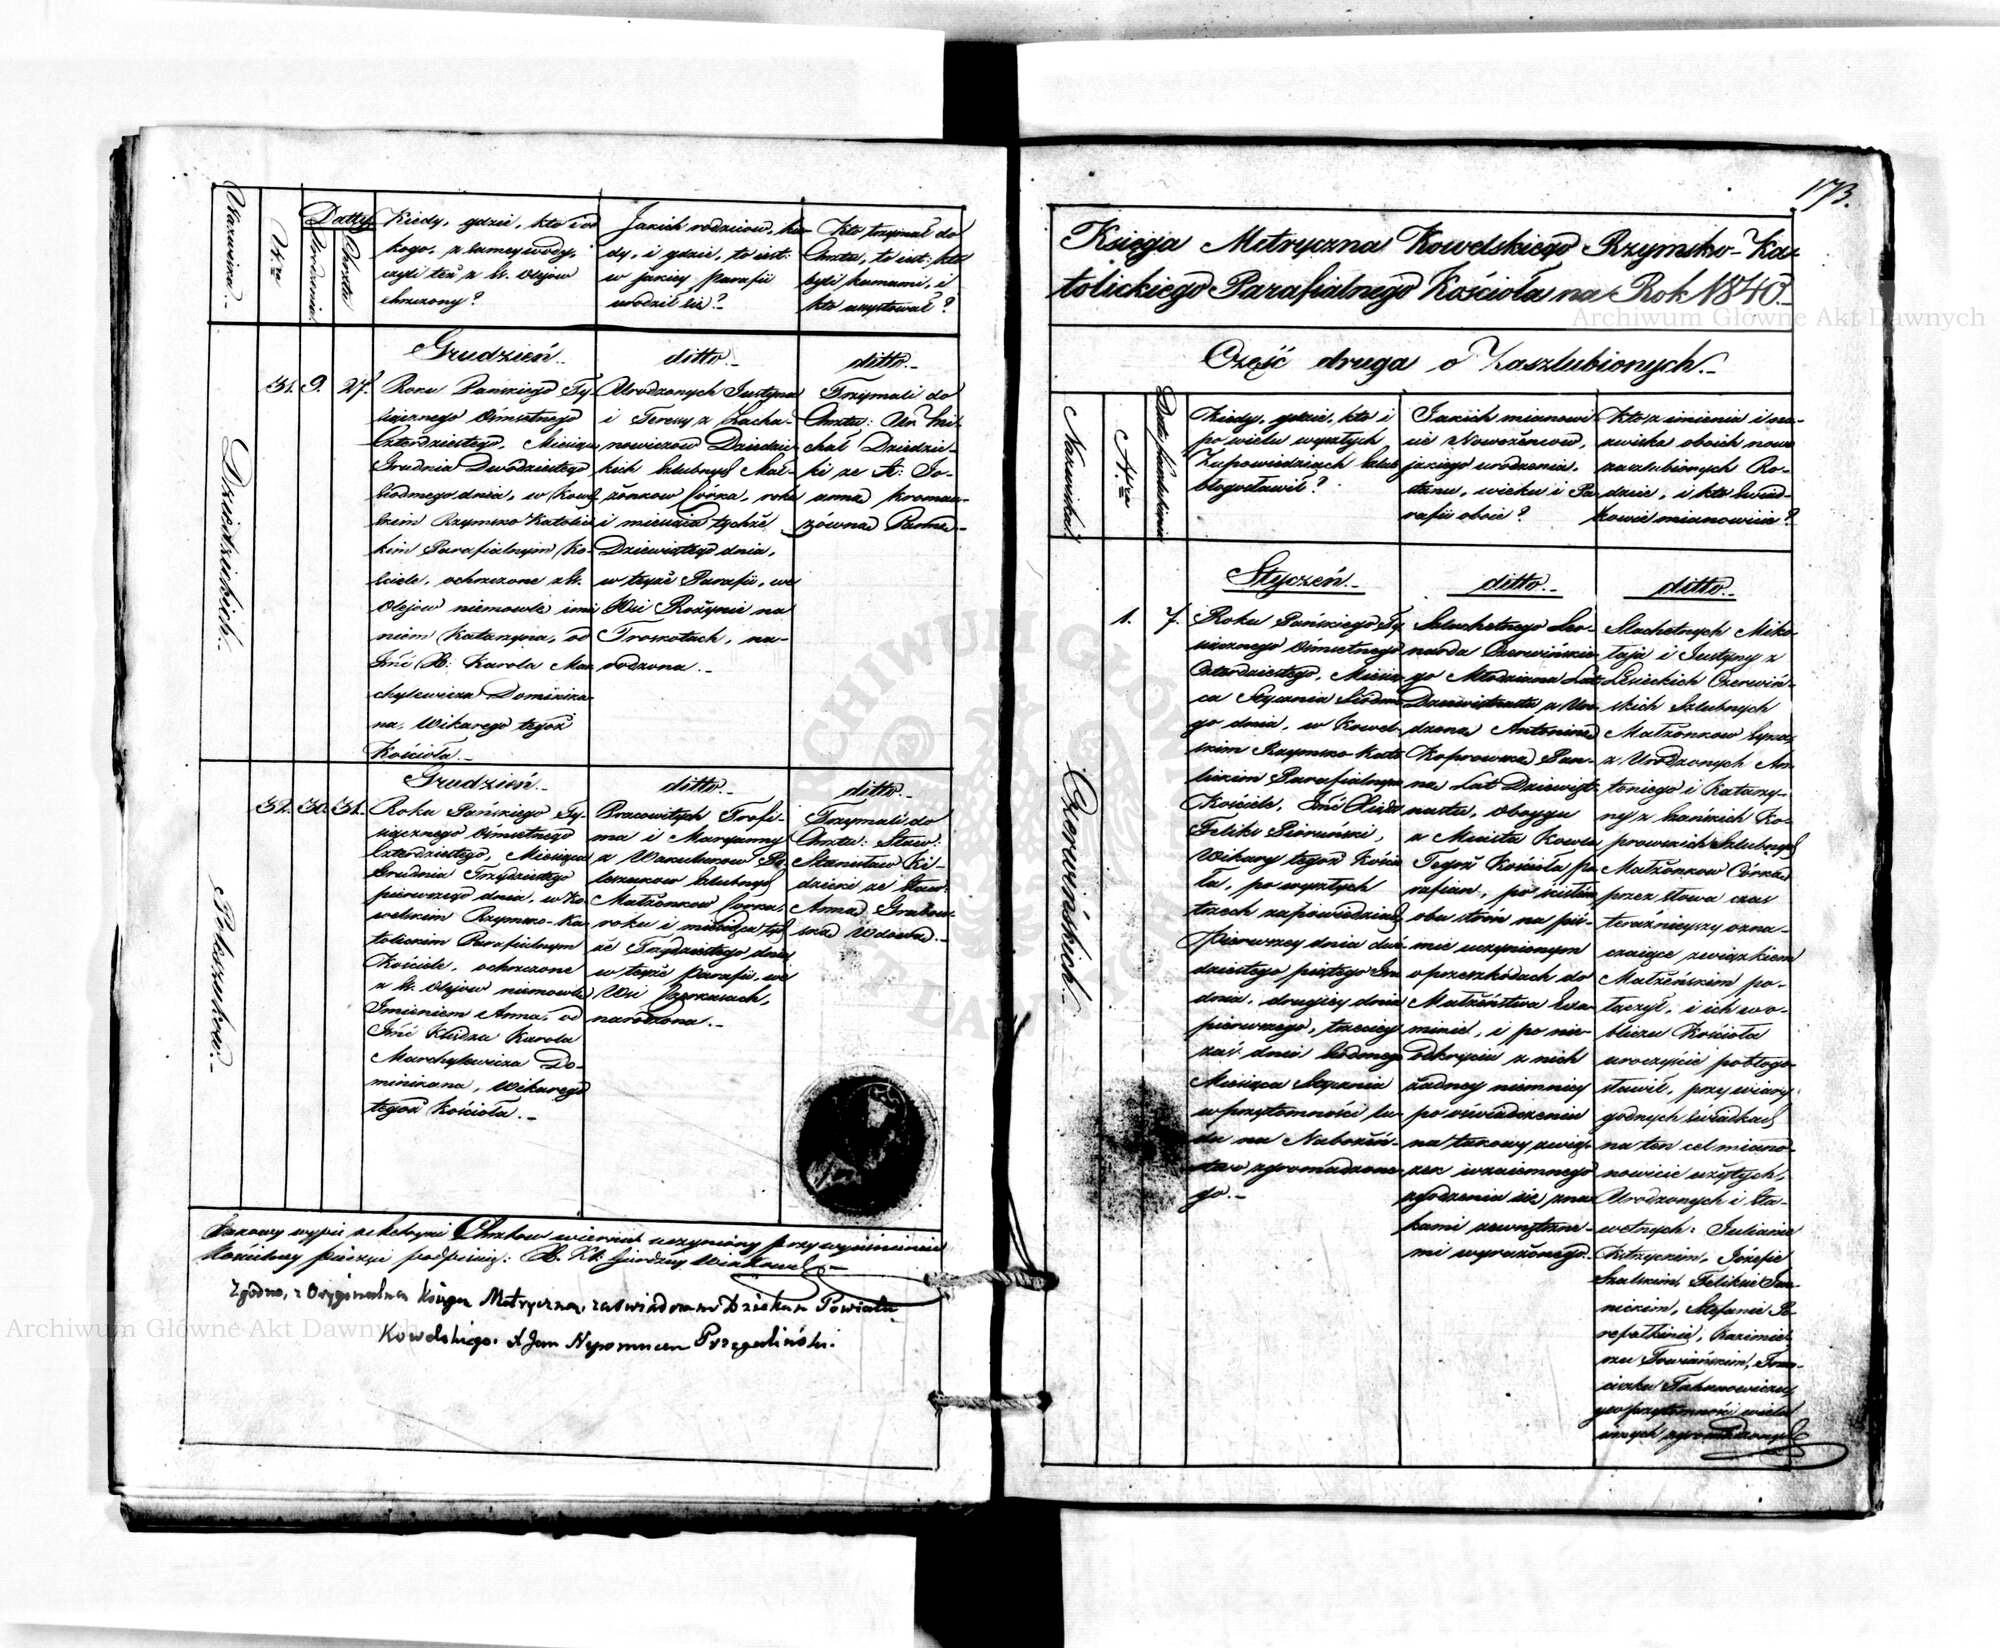 Nazwiska.
Nro
Datty
Urodzenia
Chrztu
Kiedy, gdzie, kto i od
kogo, z samey wody,
czyli też z SS. Olejow
chrzczony?
Jakich rodziców, kie-
dy, i gdzie, to iest:
w jakiey Parafii
urodził się?
Kto trzymał do
Chrztu, to iest: kto
byli kumami, i
kto assystował?
Dziedzickich.
31. 9. 27.
Grudzień.
Roku Pańskiego Ty-
siącznego Ośmsetnego
Czterdziestego, Miesiąca
Grudnia Dwódziestego
Siodmego dnia, w Kowel-
skim Rzymsko Katolic-
kim Parafialnym Ko-
ściele, ochrzczone z SS.
Olejow niemowle imie-
niem Katarzyna, od
Jmć X: Karola Mar-
chylewicza Dominika-
na, Wikarego tegoż
Kościoła.
ditto.
Urodzonych Justyna
i Teresy z Zacha-
nowiczow Dziedzic-
kich ślubnych Mał-
żonkow Córka, roku
i miesiąca tychże
Dziewiątego dnia,
w teyże Parafii, we
Wsi Rożynie na
Troskotach, na-
rodzona.
ditto.
Trzymali do
Chrztu: Ur: Mi-
chał Dziedzic-
ki ze St: Jo-
anną Kroman-
zówną Panną.
Poleszczukow.
32. 30. 31.
Grudzień.
Roku Pańskiego Ty-
siącznego Ośmsetnego
Czterdziestego, Miesiąca
Grudnia Trzydziestego
pierwszego dnia, w Ko-
welskim Rzymsko-Ka-
tolickim Parafialnym
Kościele, ochrzczone
z SS. Olejow niemowle
Imieniem Anna, od
Jmć Xiędza Karola
Marchylewicza Do-
minikana, Wikarego
tegoż Kościoła.
ditto.
Pracowitych Trofi-
ma i Maryanny
z Po-
leszczukow ślubnych
Małżonkow Corka,
roku i miesiąca tych-
że Trzydziestego dnia
w teyże Parafii, we
Wsi Czerkasach,
narodzona.
ditto.
Trzymali do
Chrztu: Sław:
Stanisław Ki-
dzicki ze Sław:
Anną Grabow-
ską Wdową.
Takowy wypis z Metryki Chrztow wiernie uczyniony przy wyciśnieniu
Kościelney pieczęci podpisuję: X.
Zgodno, z Oryginalną Księgą Metryczną, zaświadczam Dziekan Powiatu
Kowelskiego. X Jan Nepomucen Przegaliński.
173.
Księga Metryczna Kowelskiego Rzymsko-Ka-
tolickiego Parafialnego Kościoła na Rok 1840.
Część druga o Zaszlubionych.
Nazwiska
Nro
Kiedy, gdzie, kto i
po wielu wyszłych
Zapowiedziach ślub
błogosławił?
Jakich mianowi-
cie Nowożeńcow,
jakiego urodzenia,
stanu, wieku i Pa-
rafii oboie?
Kto z imienia i na-
zwiska oboich nowo
zaszlubionych Ro-
dzice, i kto świad-
kowie mianowicie?
Czerwińskich.
1. 7.
Styczeń.
Roku Pańskiego Ty-
siącznego Ośmsetnego
Czterdziestego, Miesią-
ca Stycznia Siódme-
go dnia, w Kowel-
skim Rzymsko-Kato-
lickim Parafialnym
Kościele, Jmć Xiądz
Felix Pioruński,
Wikary tegoż Kościo-
ła, po wyszłych
trzech zapowiedziach
pierwszey dnia dwó-
dziestego piątego Gru-
dnia, drugiey dnia
pierwszego, trzeciey
zaś dnia szóstego
Miesiąca Stycznia
w przytomności lu-
du na Nabożeń-
stwo zgromadzone-
go.
ditto.
Szlachetnego Leo-
narda Czerwińskie-
go Młodziana Lat
Dwadziestu z Uro-
dzoną Antoniną
Koprowską Pan-
ną Lat Dziewięt-
nastu, oboygu
z Miasta Kowla
Tegoż Kościoła Pa-
rafian, po ścisłém
obu stron na piś-
mie uczynionym
o przeszkodach do
Małżeństwa Exa-
minie, i po nie-
odkryciu z nich
żadney niemniey
po oświadczeniu
na takowy zwią-
zek wzaiemnego
zgodzenia się zna-
kami zewnętrzne-
mi wyrażonego.
ditto.
Szlachetnych Miko-
łaja i Justyny z
Lesieckich Czerwiń-
skich Szlubnych
Małżonkow Syna
z Urodzonych An-
toniego i Katarzy-
ny z Ko-
prowskich Szlubnych
Małżonkow Córką
przez słowa czas
teraźnieyszy ozna-
czaiące związkiem
Małżeńskim po-
łączył, i ich w o-
bliczu Kościoła
uroczyście pobłogo-
sławił, przy wiary-
godnych świadkach
na ten cel miano-
nowicie użytych,
Urodzonych i Sła-
wetnych: Julianie
Kitzyckim, Józefie
Szulskim, Felixie
Stefanie
Kazimie-
rzu Towiańskim, Fran-
ciszku
y w przytomności wielu
innych zgromadzonych
ARCHIWUM GŁÓWNE AKT DAWNYCH
Archiwum Główne Akt Dawnych
Archiwum Główne Akt Dawnych